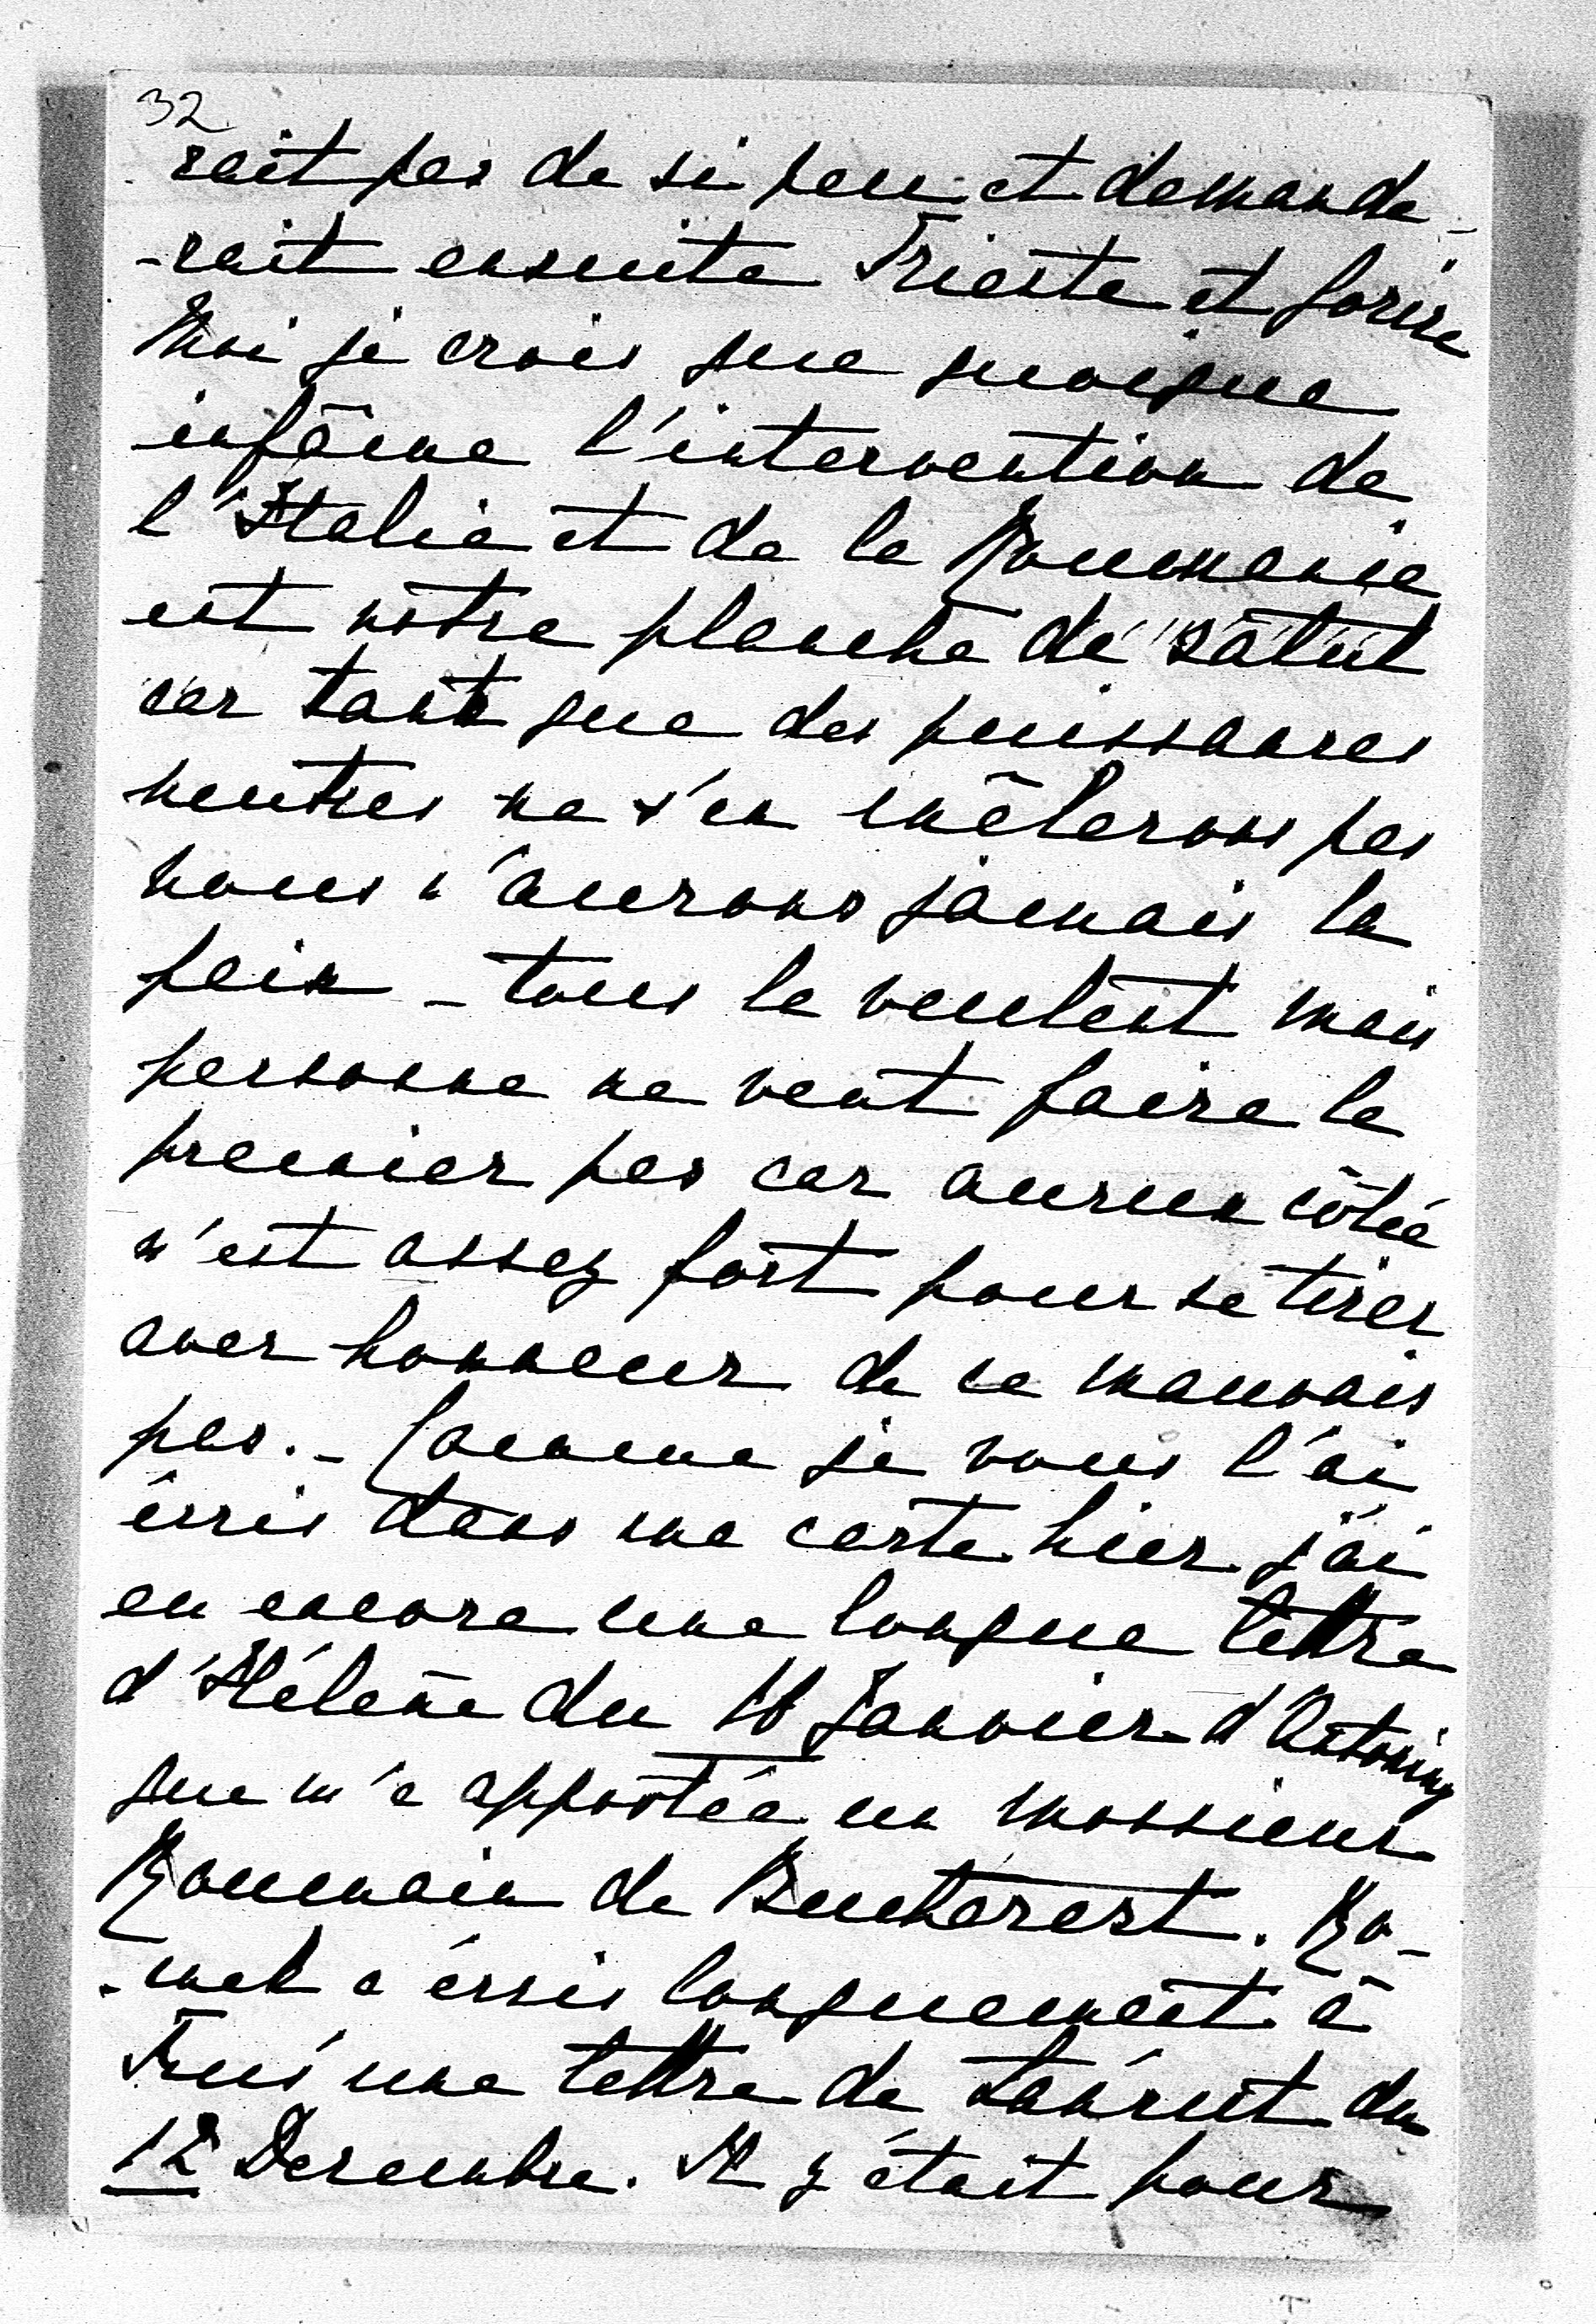 32
rait pas de si peu et demande-
-rait ensuite Trieste et Gorice
Moi je crois que quoique
infâme l'intervention de
l'Italie et de la Roumanie
est notre planche de salut
car tant que des puissances
neutres ne s'en mêlerons pas
nous n'aurons jamais la
paix - tous la veulent mais
personne ne veut faire le
premier pas car aucun côtée
n'est assez fort pour se tirer
avec honneur de ce mauvais
pas. - Comme je vous l'ai
écris dans ma carte hier j'ai
eu encore une longue lettre
d'Hélène du 18 Janvier d'Antoniny
que m'a apportée un monsieur
Roumain de Bucharest. Ro-
-mek a écris longuement à
une lettre de Łańcut du
12 Decembre. Il y était pour